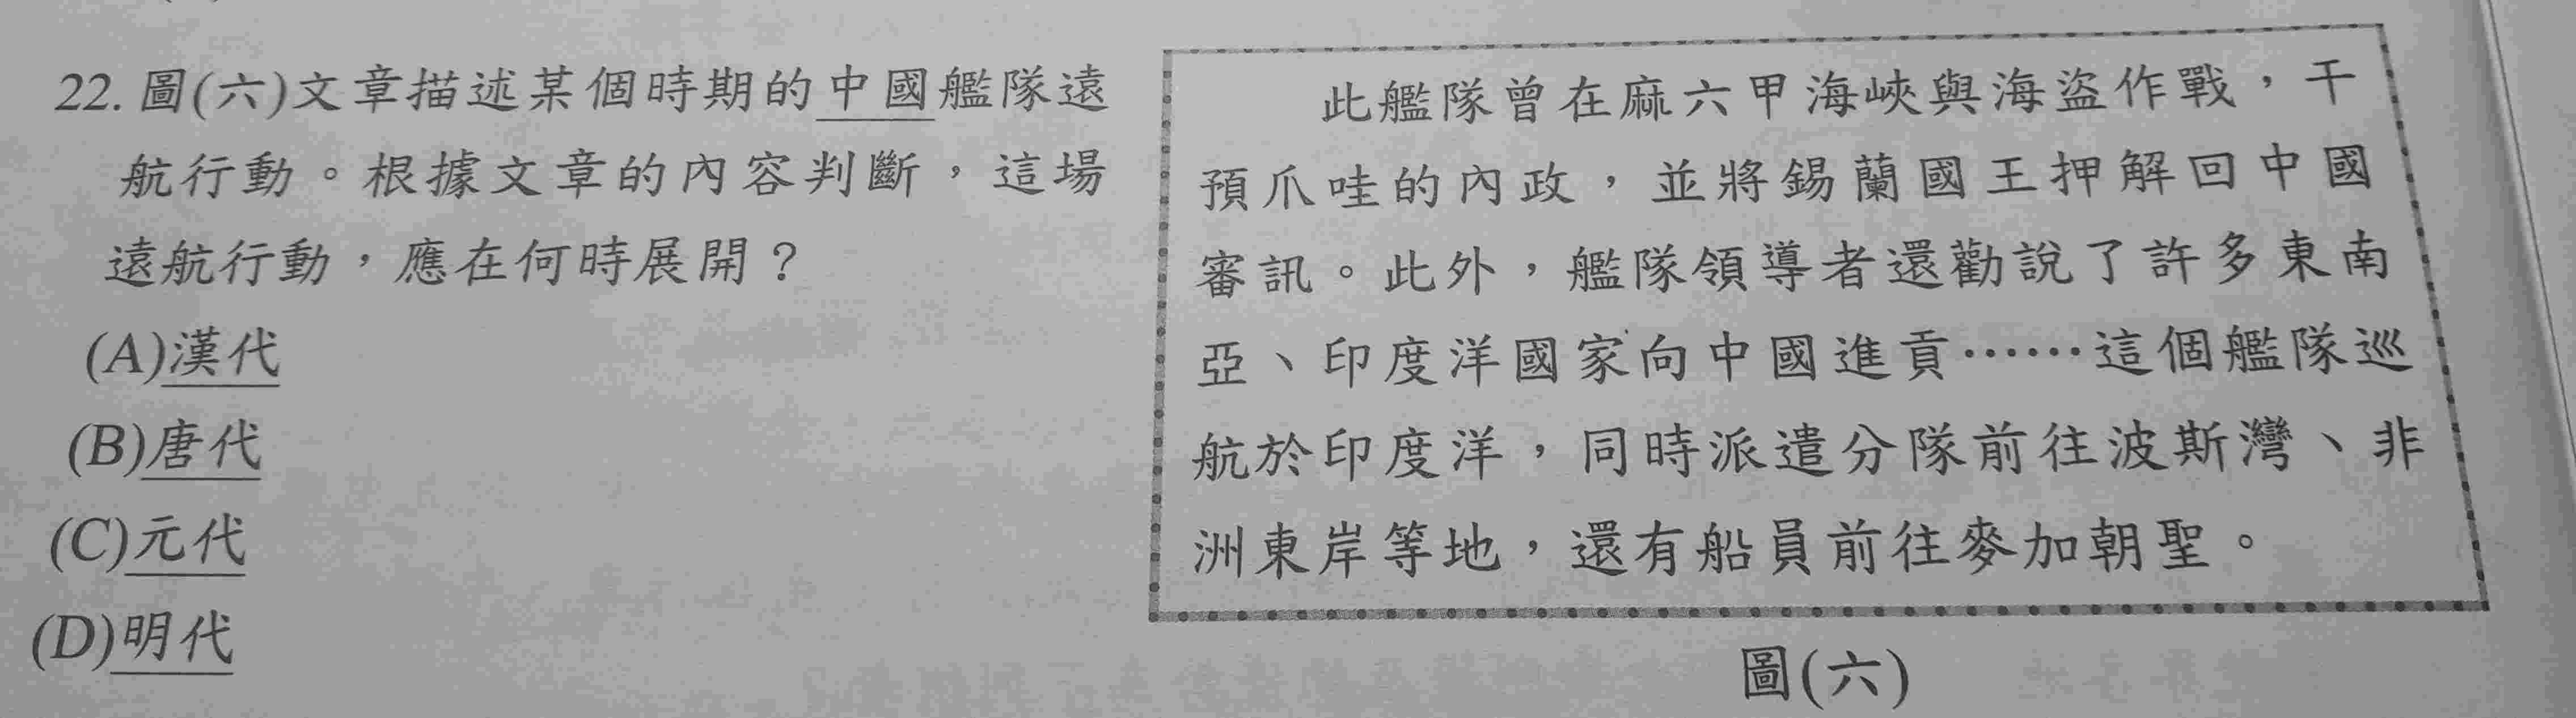 22. 圖(六)文章描述某個時期的中國艦隊遠
航行動。根據文章的內容判斷，這場
遠航行動，應在何時展開？
(A)漢代
(B)唐代
(C)元代
(D)明代
此艦隊曾在麻六甲海峽與海盜作戰，干
預爪哇的內政，並將錫蘭國王押解回中國
審訊。此外，艦隊領導者還勸說了許多東南
亞、印度洋國家向中國進貢……這個艦隊巡
航於印度洋，同時派遣分隊前往波斯灣、非
洲東岸等地，還有船員前往麥加朝聖。
圖(六)